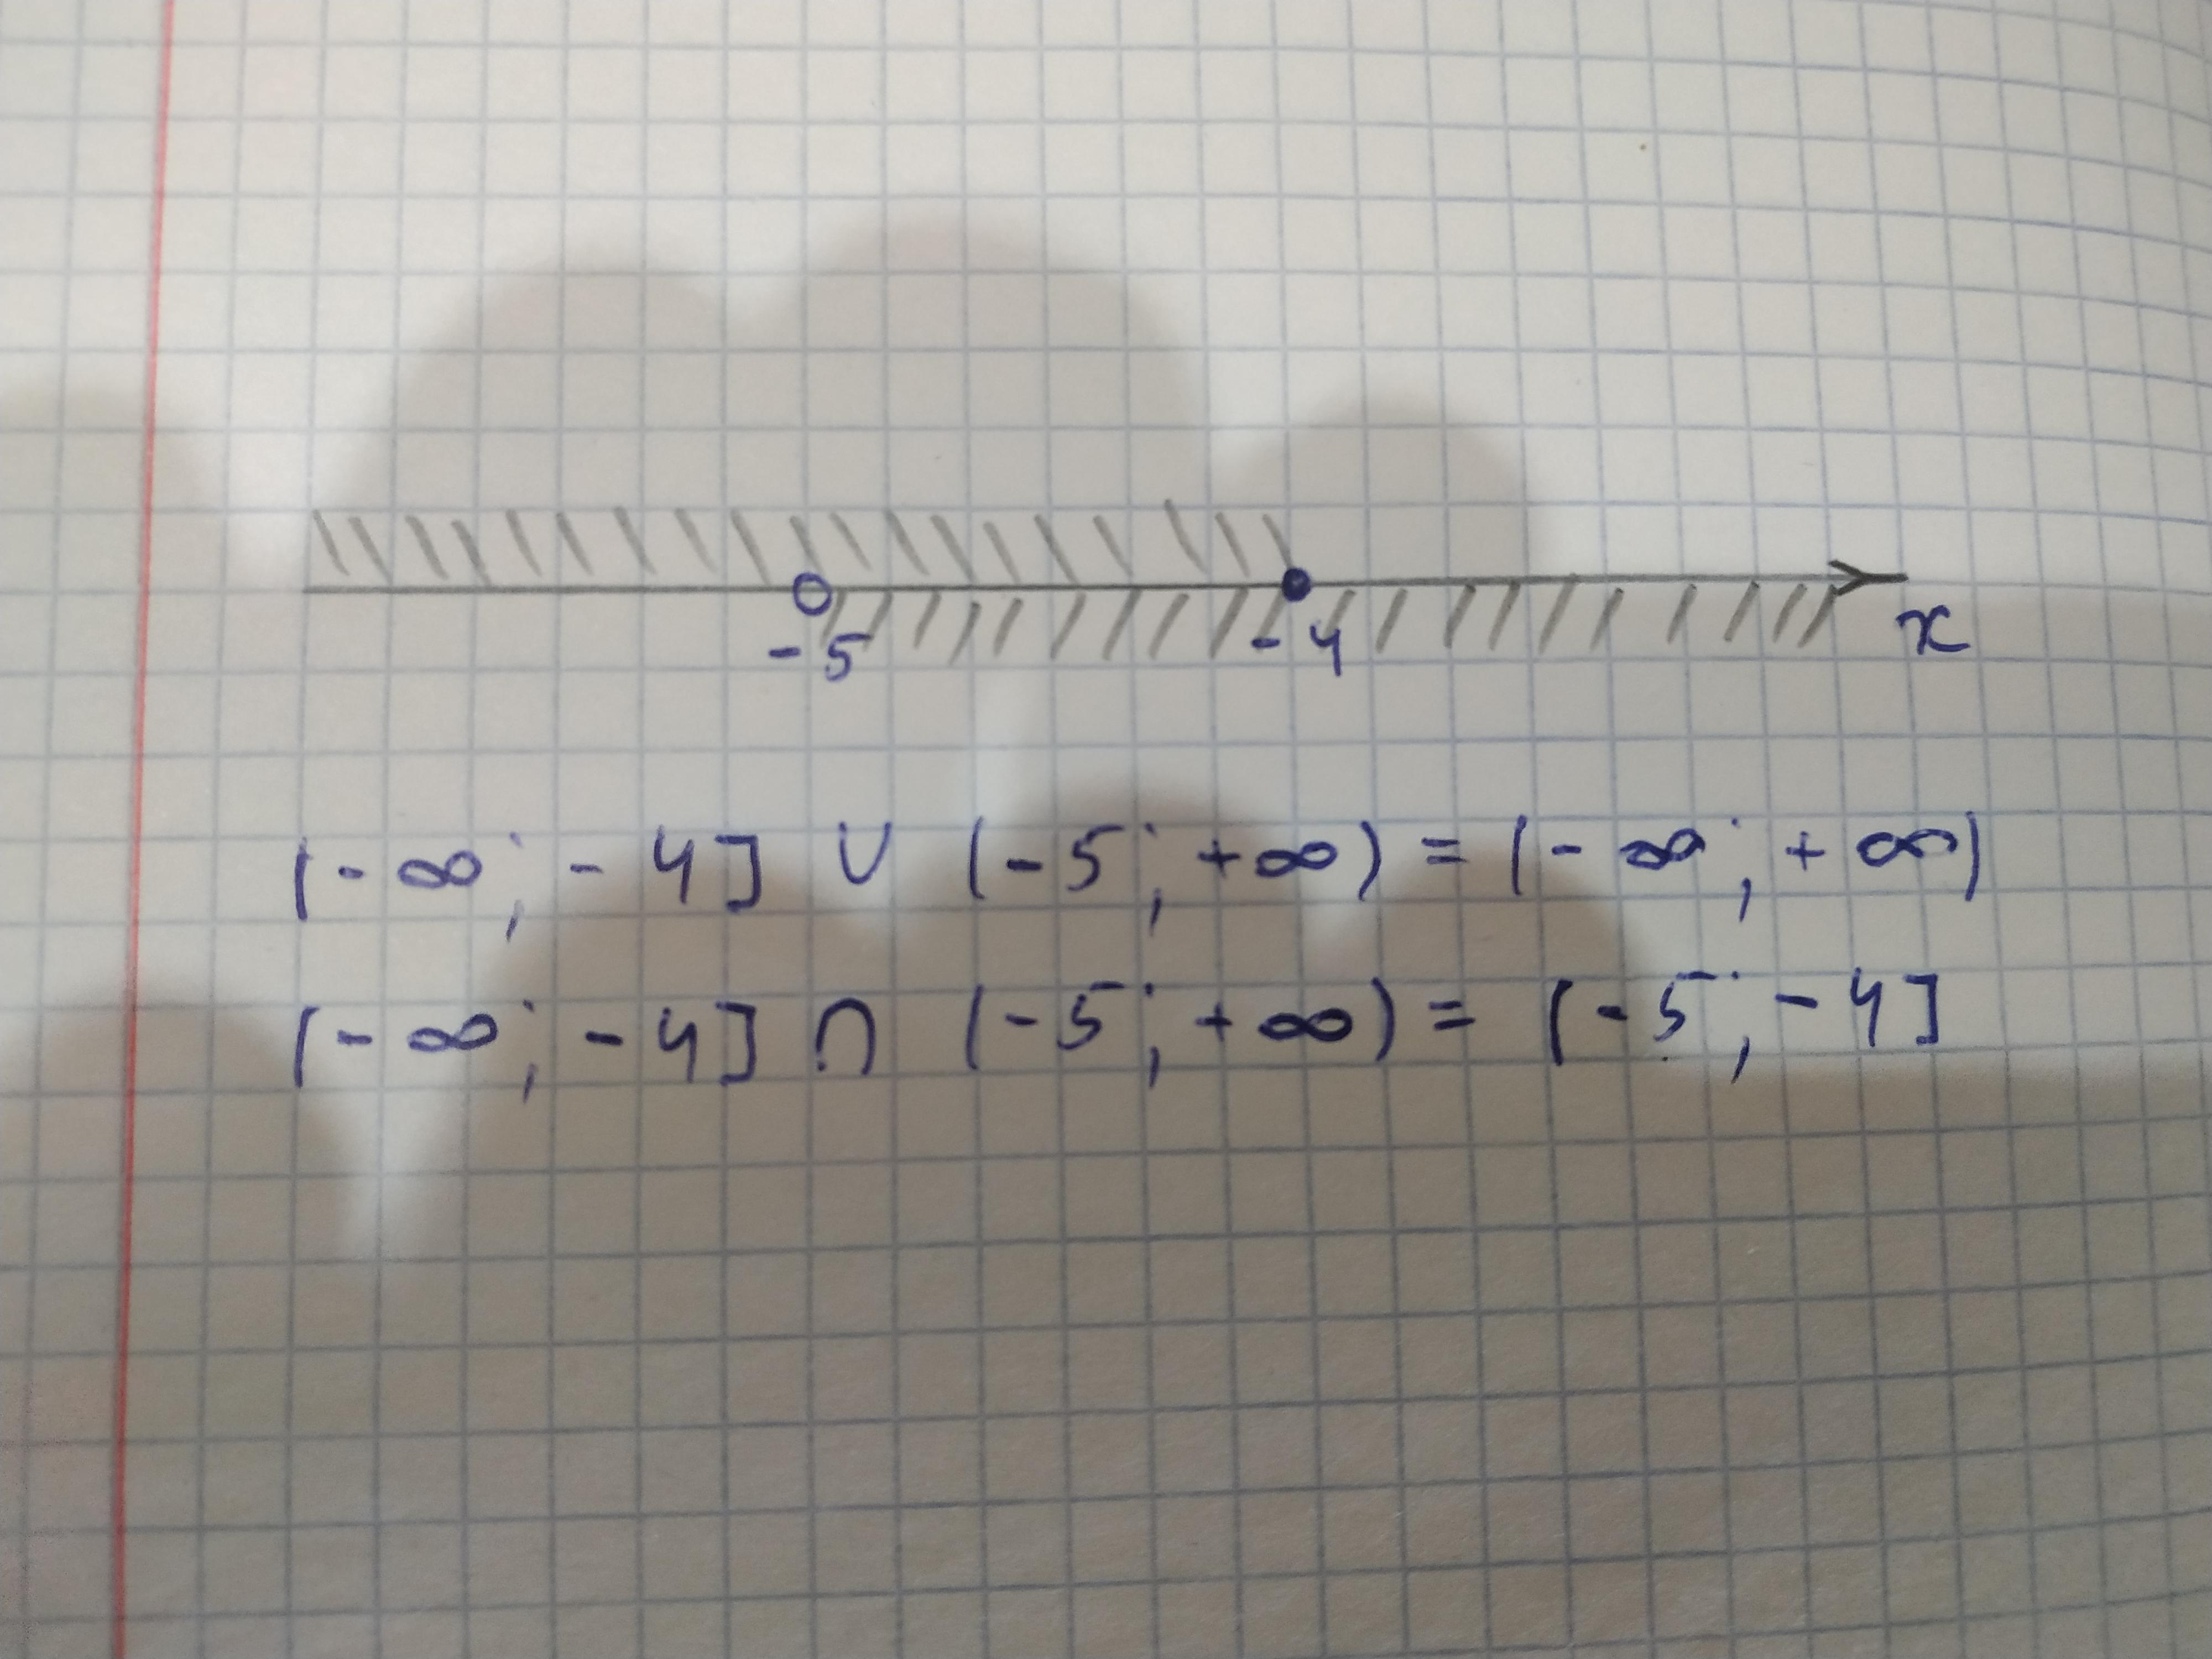 -5 -4 x
(-∞; -4] ∪ (-5; +∞) = (-∞; +∞)
(-∞; -4] ∩ (-5; +∞) = (-5; -4]